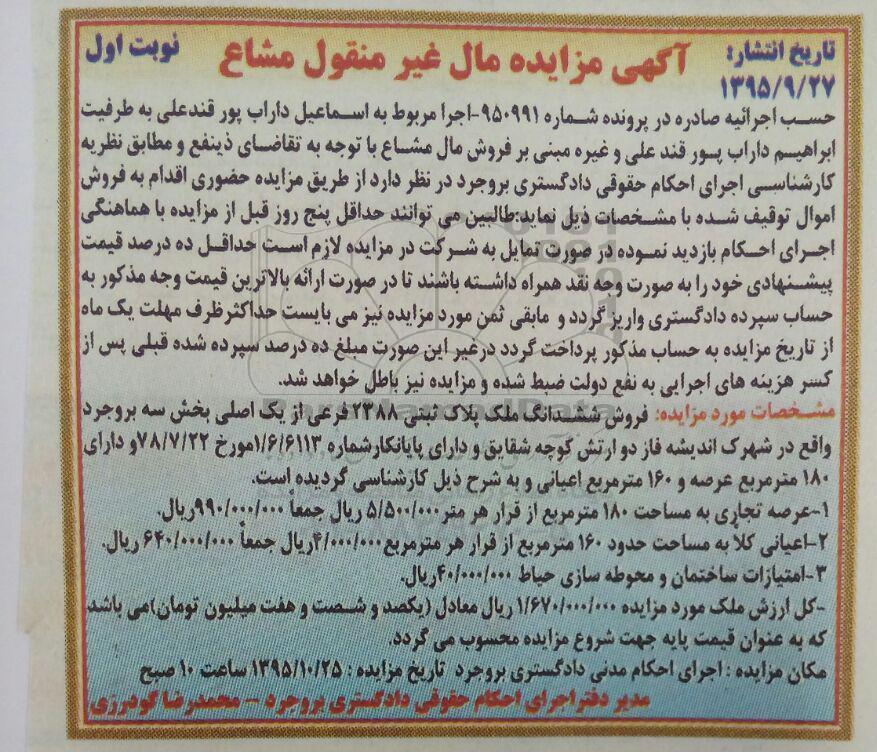 تاریخ انتشار: آگهی مزایده مال غیر منقول مشاع نوبت اول
۱۳۹۵/۹/۲۷
حسب اجرائیه صادره در پرونده شماره ۹۵۰۹۹۱-اجرا مربوط به اسماعیل داراب پور قندعلی به طرفیت
ابراهیم داراب پور قند علی و غیره مبنی بر فروش مال مشاع با توجه به تقاضای ذینفع و مطابق نظریه
کارشناسی اجرای احکام حقوقی دادگستری بروجرد در نظر دارد از طریق مزایده حضوری اقدام به فروش
اموال توقیف شده با مشخصات ذیل نماید:طالبین می توانند حداقل پنج روز قبل از مزایده با هماهنگی
اجرای احکام بازدید نموده در صورت تمایل به شرکت در مزایده لازم است حداقل ده درصد قیمت
پیشنهادی خود را به صورت وجه نقد همراه داشته باشند تا در صورت ارائه بالاترین قیمت وجه مذکور به
حساب سپرده دادگستری واریز گردد و مابقی ثمن مورد مزایده نیز می بایست حداکثرظرف مهلت یک ماه
از تاریخ مزایده به حساب مذکور پرداخت گردد درغیر این صورت مبلغ ده درصد سپرده شده قبلی پس از
کسر هزینه های اجرایی به نفع دولت ضبط شده و مزایده نیز باطل خواهد شد.
مشخصات مورد مزایده: فروش ششدانگ ملک پلاک ثبتی ۲۳۸۸ فرعی از یک اصلی بخش سه بروجرد
واقع در شهرک اندیشه فاز دو ارتش کوچه شقایق و دارای پایانکارشماره ۱/۶/۶۱۱۳مورخ ۷۸/۷/۲۲و دارای
۱۸۰ مترمربع عرصه و ۱۶۰ مترمربع اعیانی و به شرح ذیل کارشناسی گردیده است.
۱-عرصه تجاری به مساحت ۱۸۰ مترمربع از قرار هر متر۵/۵۰۰/۰۰۰ ریال جمعاً ۹۹۰/۰۰۰/۰۰۰ریال.
۲-اعیانی کلاً به مساحت حدود ۱۶۰ مترمربع از قرار هر مترمربع۴/۰۰۰/۰۰۰ریال جمعاً ۶۴۰/۰۰۰/۰۰۰ ریال.
۳-امتیازات ساختمان و محوطه سازی حیاط ۴۰/۰۰۰/۰۰۰ریال.
-کل ارزش ملک مورد مزایده ۱/۶۷۰/۰۰۰/۰۰۰ ریال معادل (یکصد و شصت و هفت میلیون تومان)می باشد
که به عنوان قیمت پایه جهت شروع مزایده محسوب می گردد.
مکان مزایده : اجرای احکام مدنی دادگستری بروجرد تاریخ مزایده : ۱۳۹۵/۱۰/۲۵ ساعت ۱۰ صبح
مدیر دفتراجرای احکام حقوقی دادگستری بروجرد - محمدرضا گودرزی